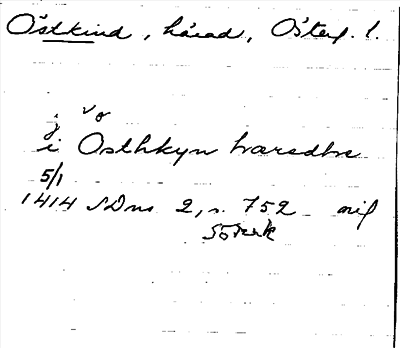 Östkind, härad, Österg. l.
i Osthkyn hæredhe
5/1
1414 SDns 2, s. 752 avs